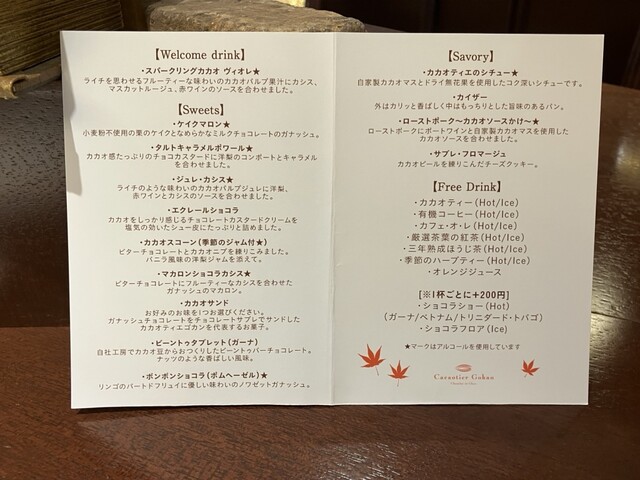 【Welcome drink】
・スパークリングカカオ ヴィオレ★
ライチを思わせるフルーティーな味わいのカカオパルプ果汁にカシス、
マスカットルージュ、赤ワインのソースを合わせました。
【Sweets】
・ケイクマロン★
小麦粉不使用の栗のケイクとなめらかなミルクチョコレートのガナッシュ。
・タルトキャラメルポワール★
カカオ感たっぷりのチョコカスタードに洋梨のコンポートとキャラメル
を合わせました。
・ジュレ・カシス★
ライチのような味わいのカカオパルプジュレに洋梨、
赤ワインとカシスのソースを合わせました。
・エクレールショコラ
カカオをしっかり感じるチョコレートカスタードクリームを
塩気の効いたシュー皮にたっぷりと詰めました。
・カカオスコーン(季節のジャム付★)
ビターチョコレートとカカオニブを練りこみました。
バニラ風味の洋梨ジャムを添えて。
・マカロンショコラカシス★
ビターチョコレートにフルーティーなカシスを合わせた
ガナッシュのマカロン。
・カカオサンド
お好みのお味を1つお選びください。
ガナッシュチョコレートをチョコレートサブレでサンドした
カカオティエゴカンを代表するお菓子。
・ビーントゥタブレット(ガーナ)
自社工房でカカオ豆からおつくりしたビーントゥバーチョコレート。
ナッツのような香ばしい風味。
・ボンボンショコラ(ポムヘーゼル)★
リンゴのパートドフリュイに優しい味わいのノワゼットガナッシュ。
【Savory】
・カカオティエのシチュー★
自家製カカオマスとドライ無花果を使用したコク深いシチューです。
・カイザー
外はカリッと香ばしく中はもっちりとした旨味のあるパン。
・ローストポーク〜カカオソースかけ〜★
ローストポークにポートワインと自家製カカオマスを使用した
カカオソースを合わせました。
・サブレ・フロマージュ
カカオピールを練りこんだチーズクッキー。
【Free Drink】
・カカオティー(Hot/Ice)
・有機コーヒー(Hot/Ice)
・カフェ・オ・レ(Hot/Ice)
・厳選茶葉の紅茶(Hot/Ice)
・三年熟成ほうじ茶(Hot/Ice)
・季節のハーブティー(Hot/Ice)
・オレンジジュース
[※1杯ごとに+200円]
・ショコラショー(Hot)
(ガーナ/ベトナム/トリニダード・トバゴ)
・ショコラフロア(Ice)
★マークはアルコールを使用しています
Cacaotier Gokan